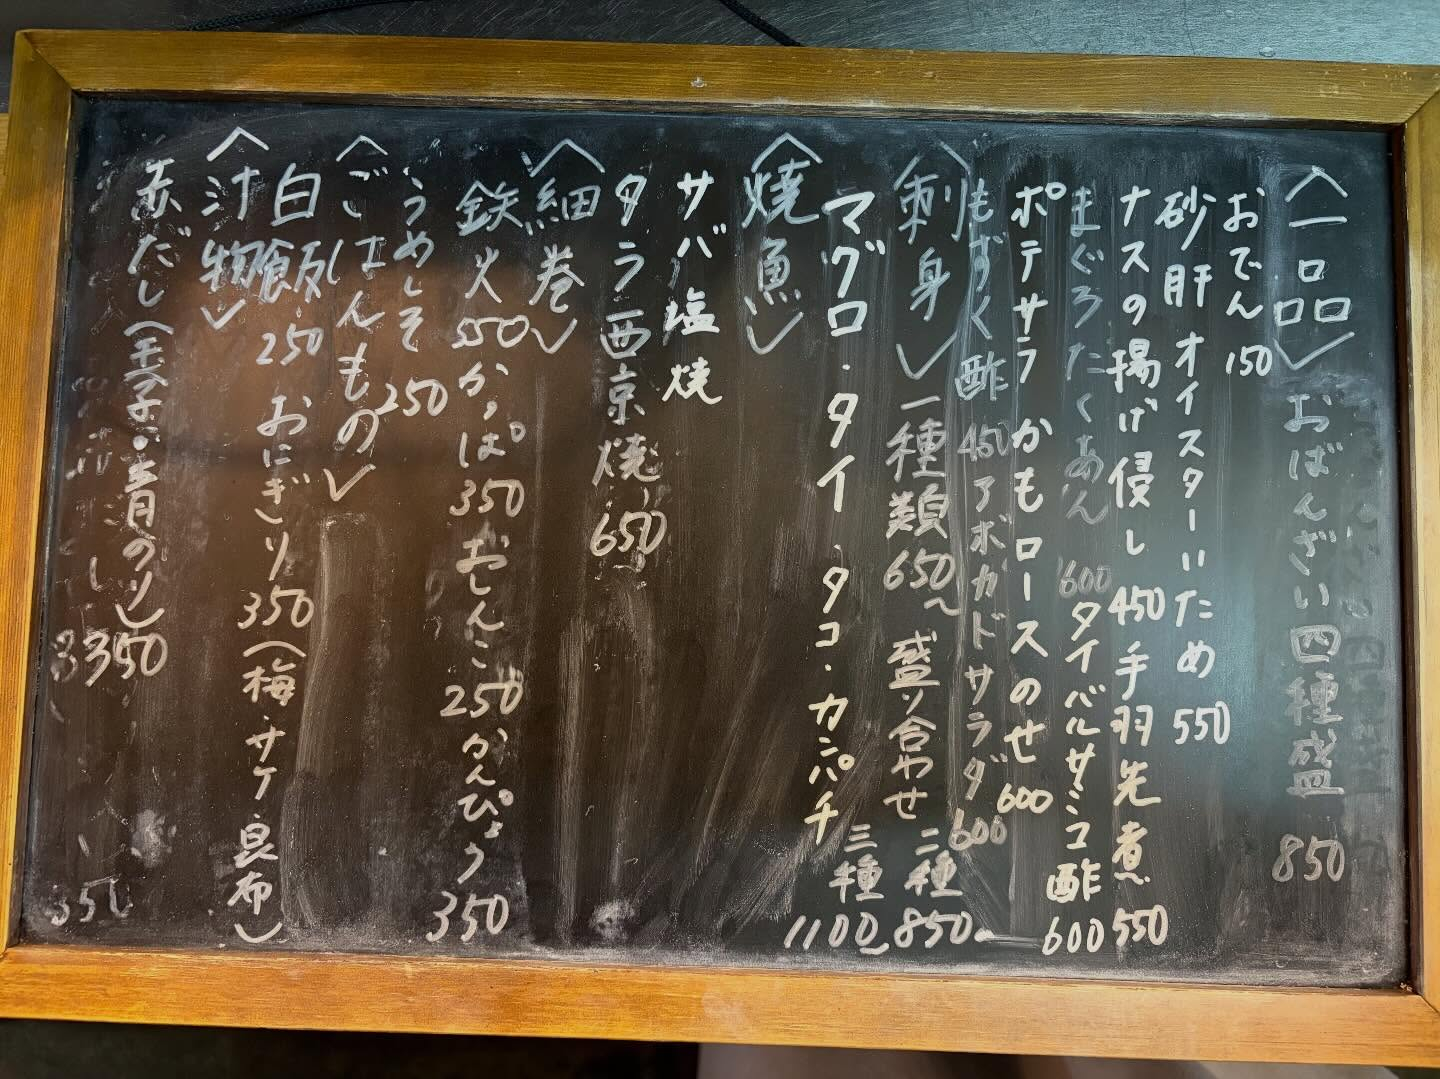 〈一品〉 おばんざい四種盛 850
おでん 150
砂肝オイスターいため 550
ナスの揚げ侵し 450 手羽先煮 550
まぐろたくあん 600 タイバルサミコ酢 600
ポテサラ かもロースのせ 600
もずく酢 450 アボカドサラダ 600
〈刺身〉 一種類 650〜 盛り合わせ 二種 850〜
三種 1100〜
マグロ・タイ・タコ・カンパチ
〈焼魚〉
サバ塩焼
タラ西京焼 650
〈細巻〉
鉄火 550 かっぱ 350 おしんこ 250 かんぴょう 350
うめしそ 250
〈ごはんもの〉
白飯 250 おにぎり 350 (梅・サケ・昆布)
〈汁物〉
赤だし(玉子・青のり) 350
350